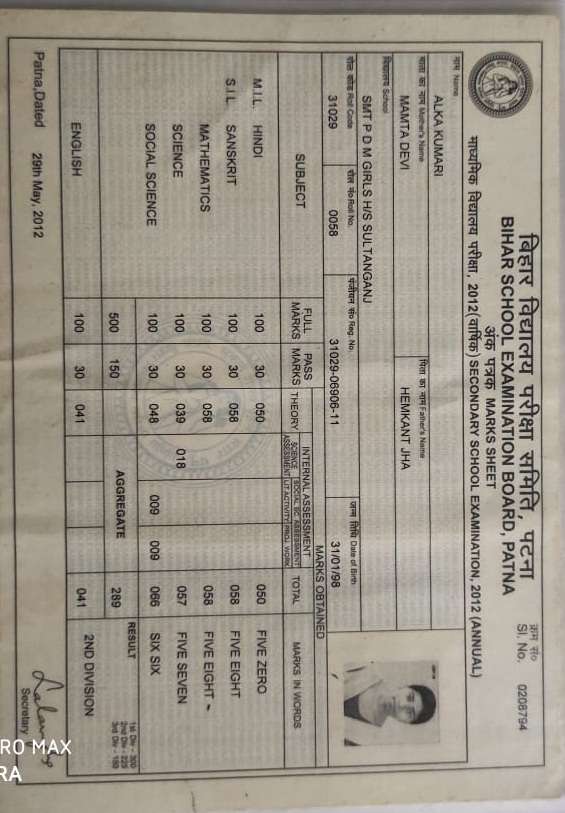 बिहार विद्यालय परीक्षा समिति, पटना
BIHAR SCHOOL EXAMINATION BOARD, PATNA
क्रम सं०
Sl. No. 0208794
अंक पत्रक MARKS SHEET
माध्यमिक विद्यालय परीक्षा, 2012(वार्षिक) SECONDARY SCHOOL EXAMINATION, 2012 (ANNUAL)
नाम Name
ALKA KUMARI
माता का नाम Mother's Name
MAMTA DEVI
पिता का नाम Father's Name
HEMKANT JHA
विद्यालय School
SMT P D M GIRLS H/S SULTANGANJ
रोल कोड Roll Code
31029
रोल नं० Roll No.
0058
पंजीयन सं० Reg. No.
31029-06906-11
जन्म तिथि Date of Birth
31/01/98
SUBJECT FULL MARKS PASS MARKS MARKS OBTAINED MARKS IN WORDS
THEORY INTERNAL ASSESSMENT TOTAL
SCIENCE ASSESSMENT SOCIAL SC. ASSESSMENT
LIT ACTIVITY PROJ. WORK
M.I.L. HINDI 100 30 050 050 FIVE ZERO
S.I.L. SANSKRIT 100 30 058 058 FIVE EIGHT
MATHEMATICS 100 30 058 058 FIVE EIGHT
SCIENCE 100 30 039 018 057 FIVE SEVEN
SOCIAL SCIENCE 100 30 048 009 009 066 SIX SIX
500 150 AGGREGATE 289 RESULT
1st Div - 300
2nd Div - 225
3rd Div - 150
ENGLISH 100 30 041 041 2ND DIVISION
Patna,Dated 29th May, 2012
Secretary
RO MAX
RA